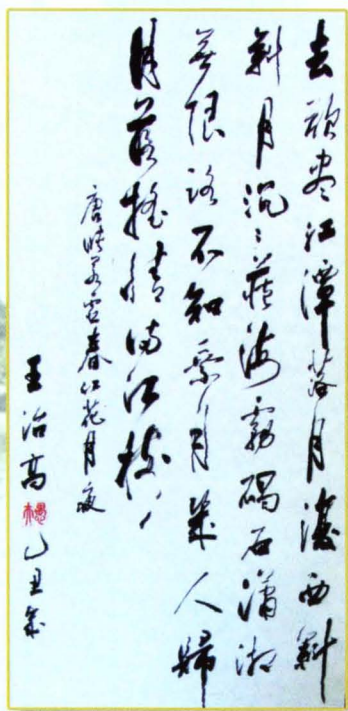 去欲尽江潭落月復西斜
斜月沉々藏海霧碣石瀟湘
無限路不知乘月幾人歸
月落摇情满江樹
唐張若虚春江花月夜
王治高 己丑年